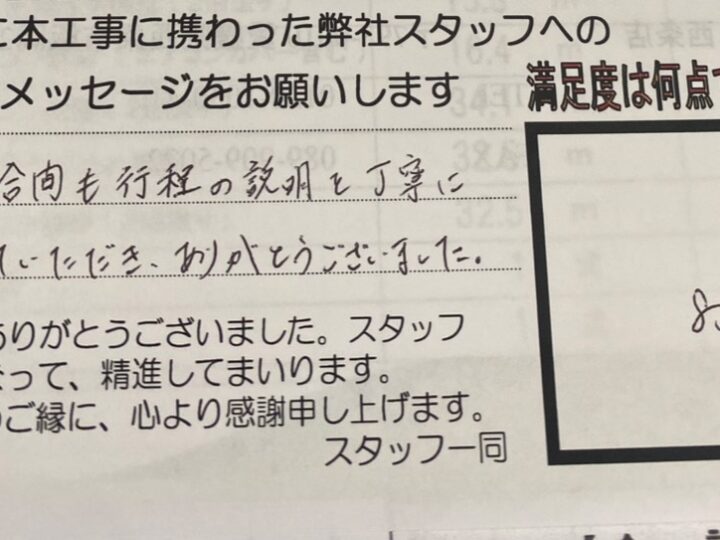 に本工事に携わった弊社スタッフへの
メッセージをお願いします
満足度は何点で
合間も行程の説明を丁寧に
ていただき、ありがとうございました。
ありがとうございました。スタッフ
なって、精進してまいります。
のご縁に、心より感謝申し上げます。
スタッフ一同